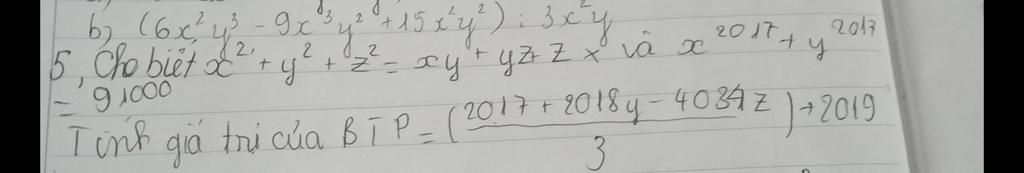 b, (6x²y³ - 9x³y² + 15x²y²) : 3x²y
5, Cho biết x² + y² + z² = xy + yz + zx và x²⁰¹⁷ + y²⁰¹⁷
= 9,000
Tính giá trị của BT P = (2017 + 2018y - 4034z / 3) + 2019